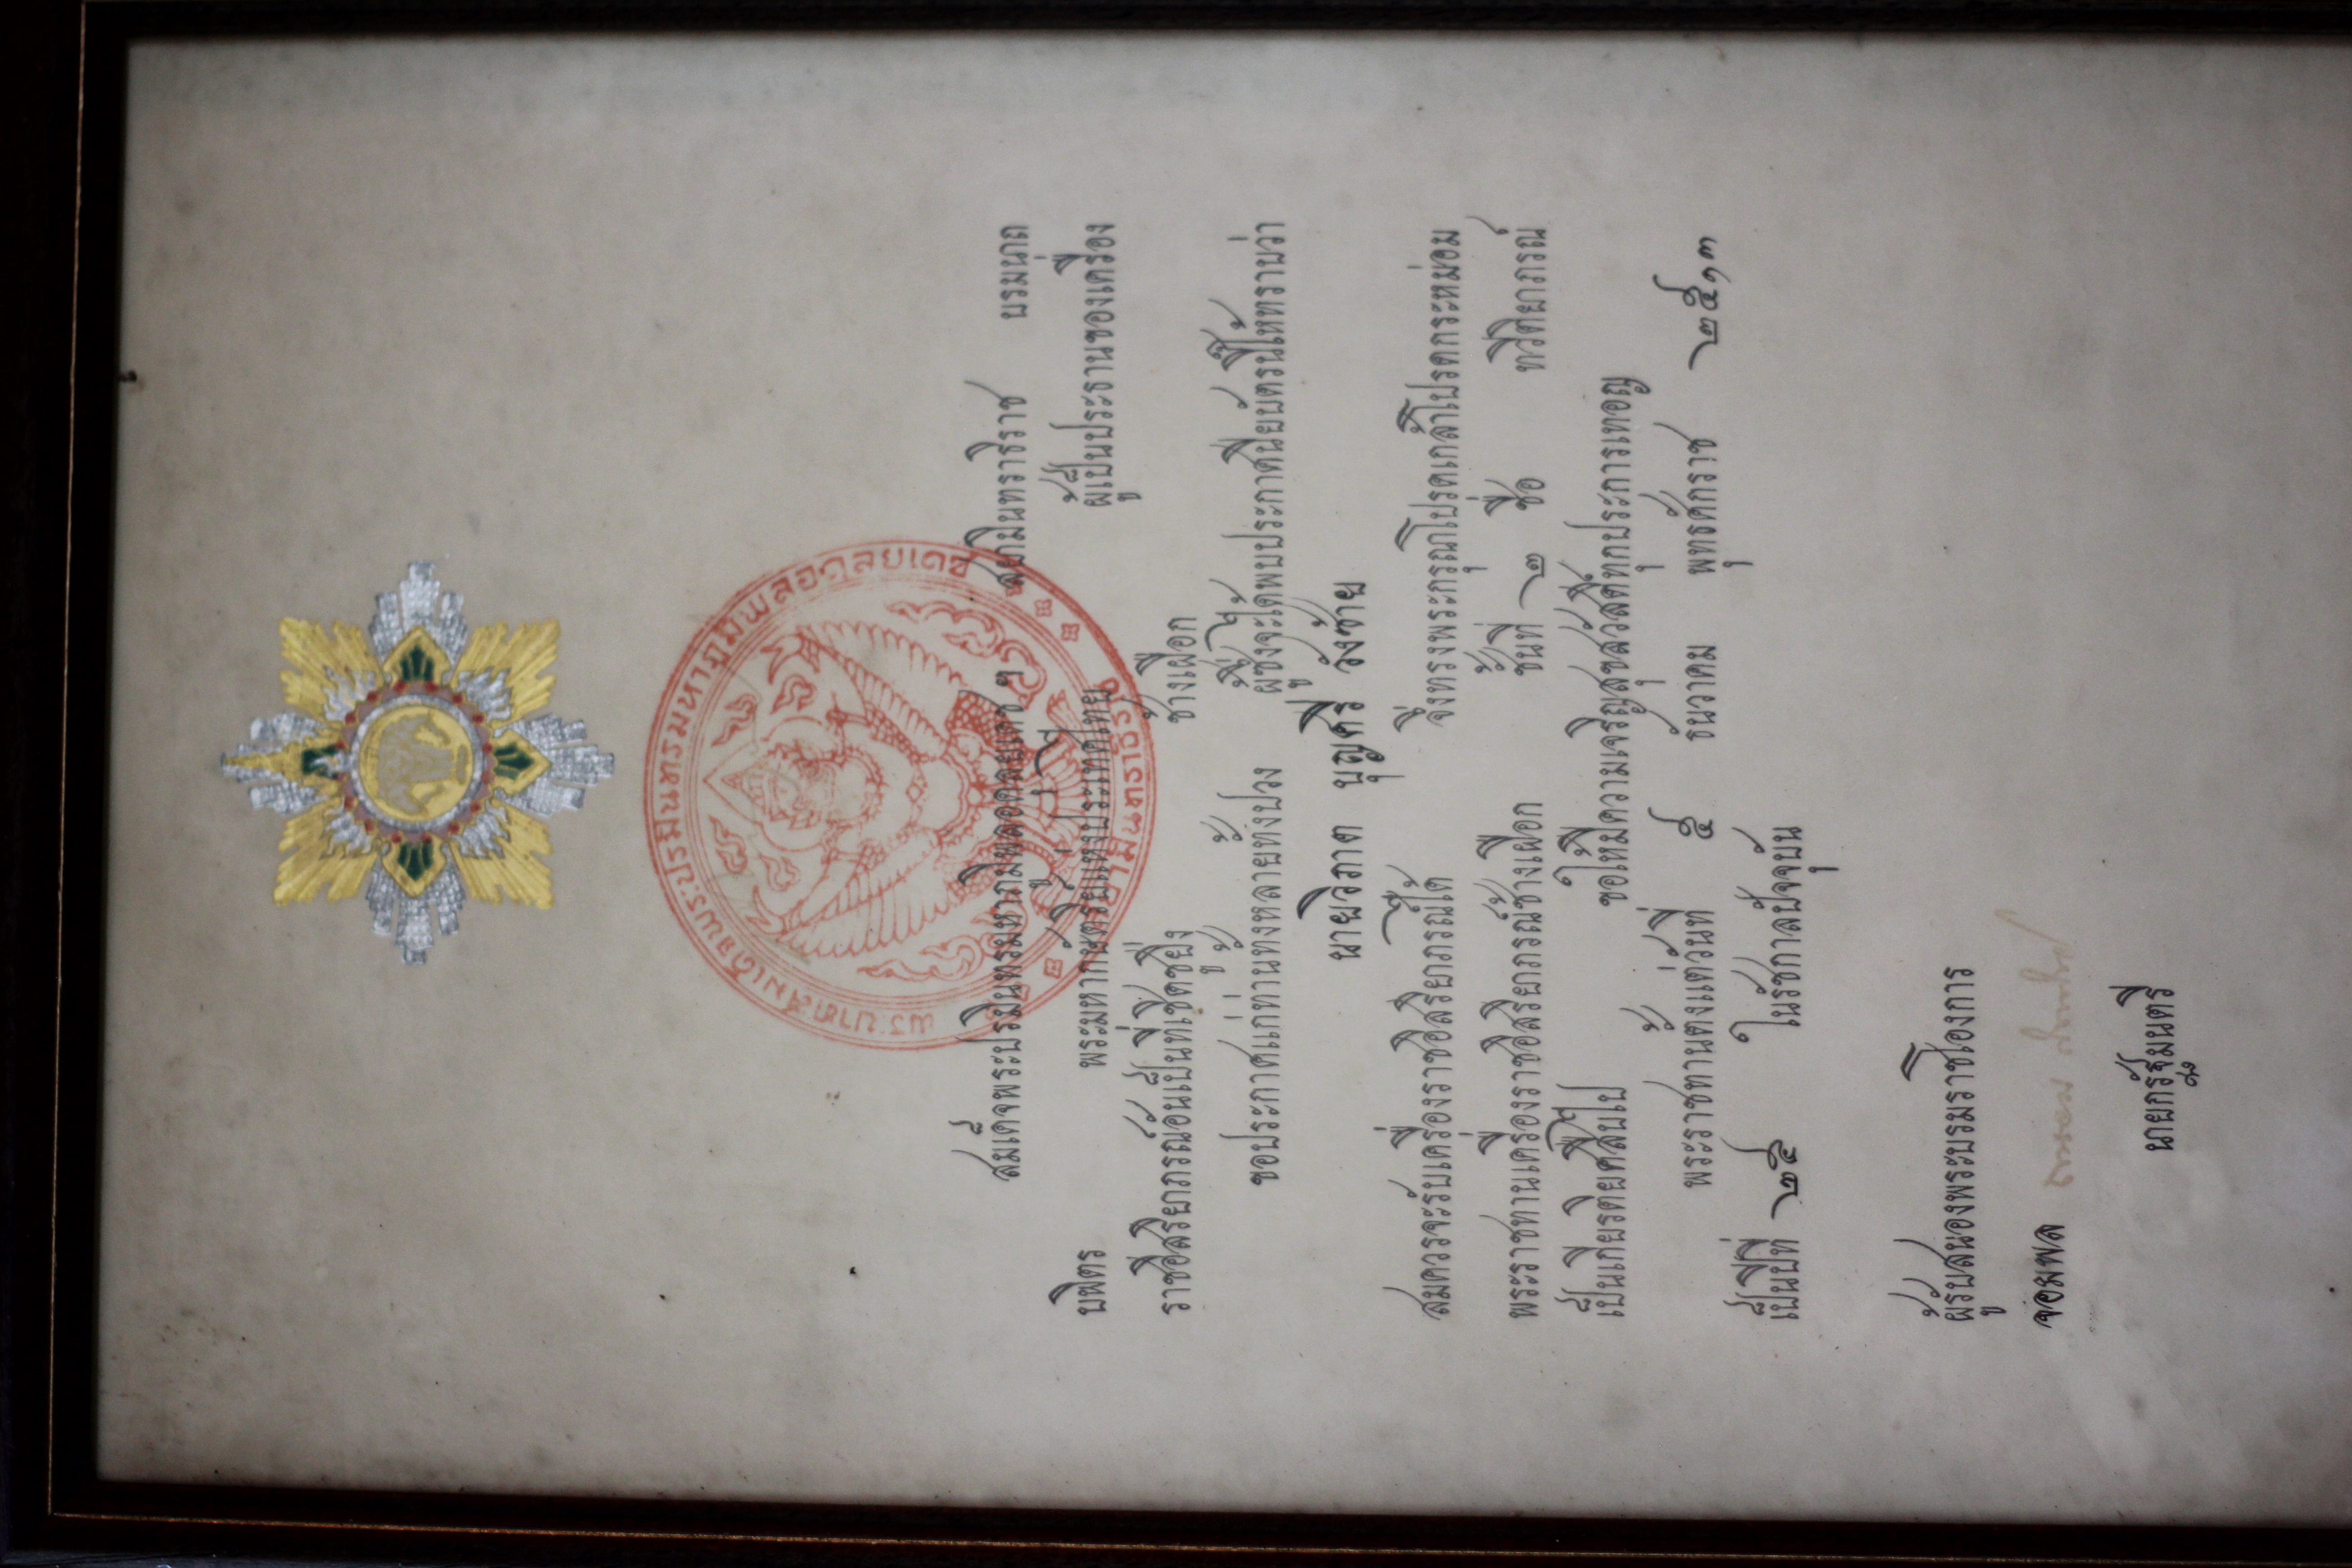 พระบาทสมเด็จพระปรมินทรมหาภูมิพลอดุลยเดช
สมเด็จพระปรมินทรมหาภูมิพลอดุลยเดช ฯ สยามินทราธิราช บรมนาถ
บพิตร พระมหากษัตริย์แห่งประเทศไทย ผู้เป็นประธานของเครื่อง
ราชอิสริยาภรณ์อันเป็นที่เชิดชูยิ่ง ช้างเผือก
ขอประกาศแก่ท่านทั้งหลายทั้งปวง ผู้ซึ่งจะได้พบประกาศนียบัตรนี้ให้ทราบว่า
นายวิภาค บุญศรี วังซ้าย
สมควรจะรับเครื่องราชอิสริยาภรณ์ได้ จึ่งทรงพระกรุณาโปรดเกล้าโปรดกระหม่อม
พระราชทานเครื่องราชอิสริยาภรณ์ช้างเผือก ชั้นที่ ๒ ชื่อ ทวีติยาภรณ์
เป็นเกียรติยศสืบไป ขอให้มีความเจริญสุขสวัสดิ์ทุกประการเทอญ
พระราชทานตั้งแต่วันที่ ๕ ธันวาคม พุทธศักราช ๒๕๑๓
เป็นปีที่ ๒๕ ในรัชกาลปัจจุบัน
ผู้รับสนองพระบรมราชโองการ
จอมพล
นายกรัฐมนตรี